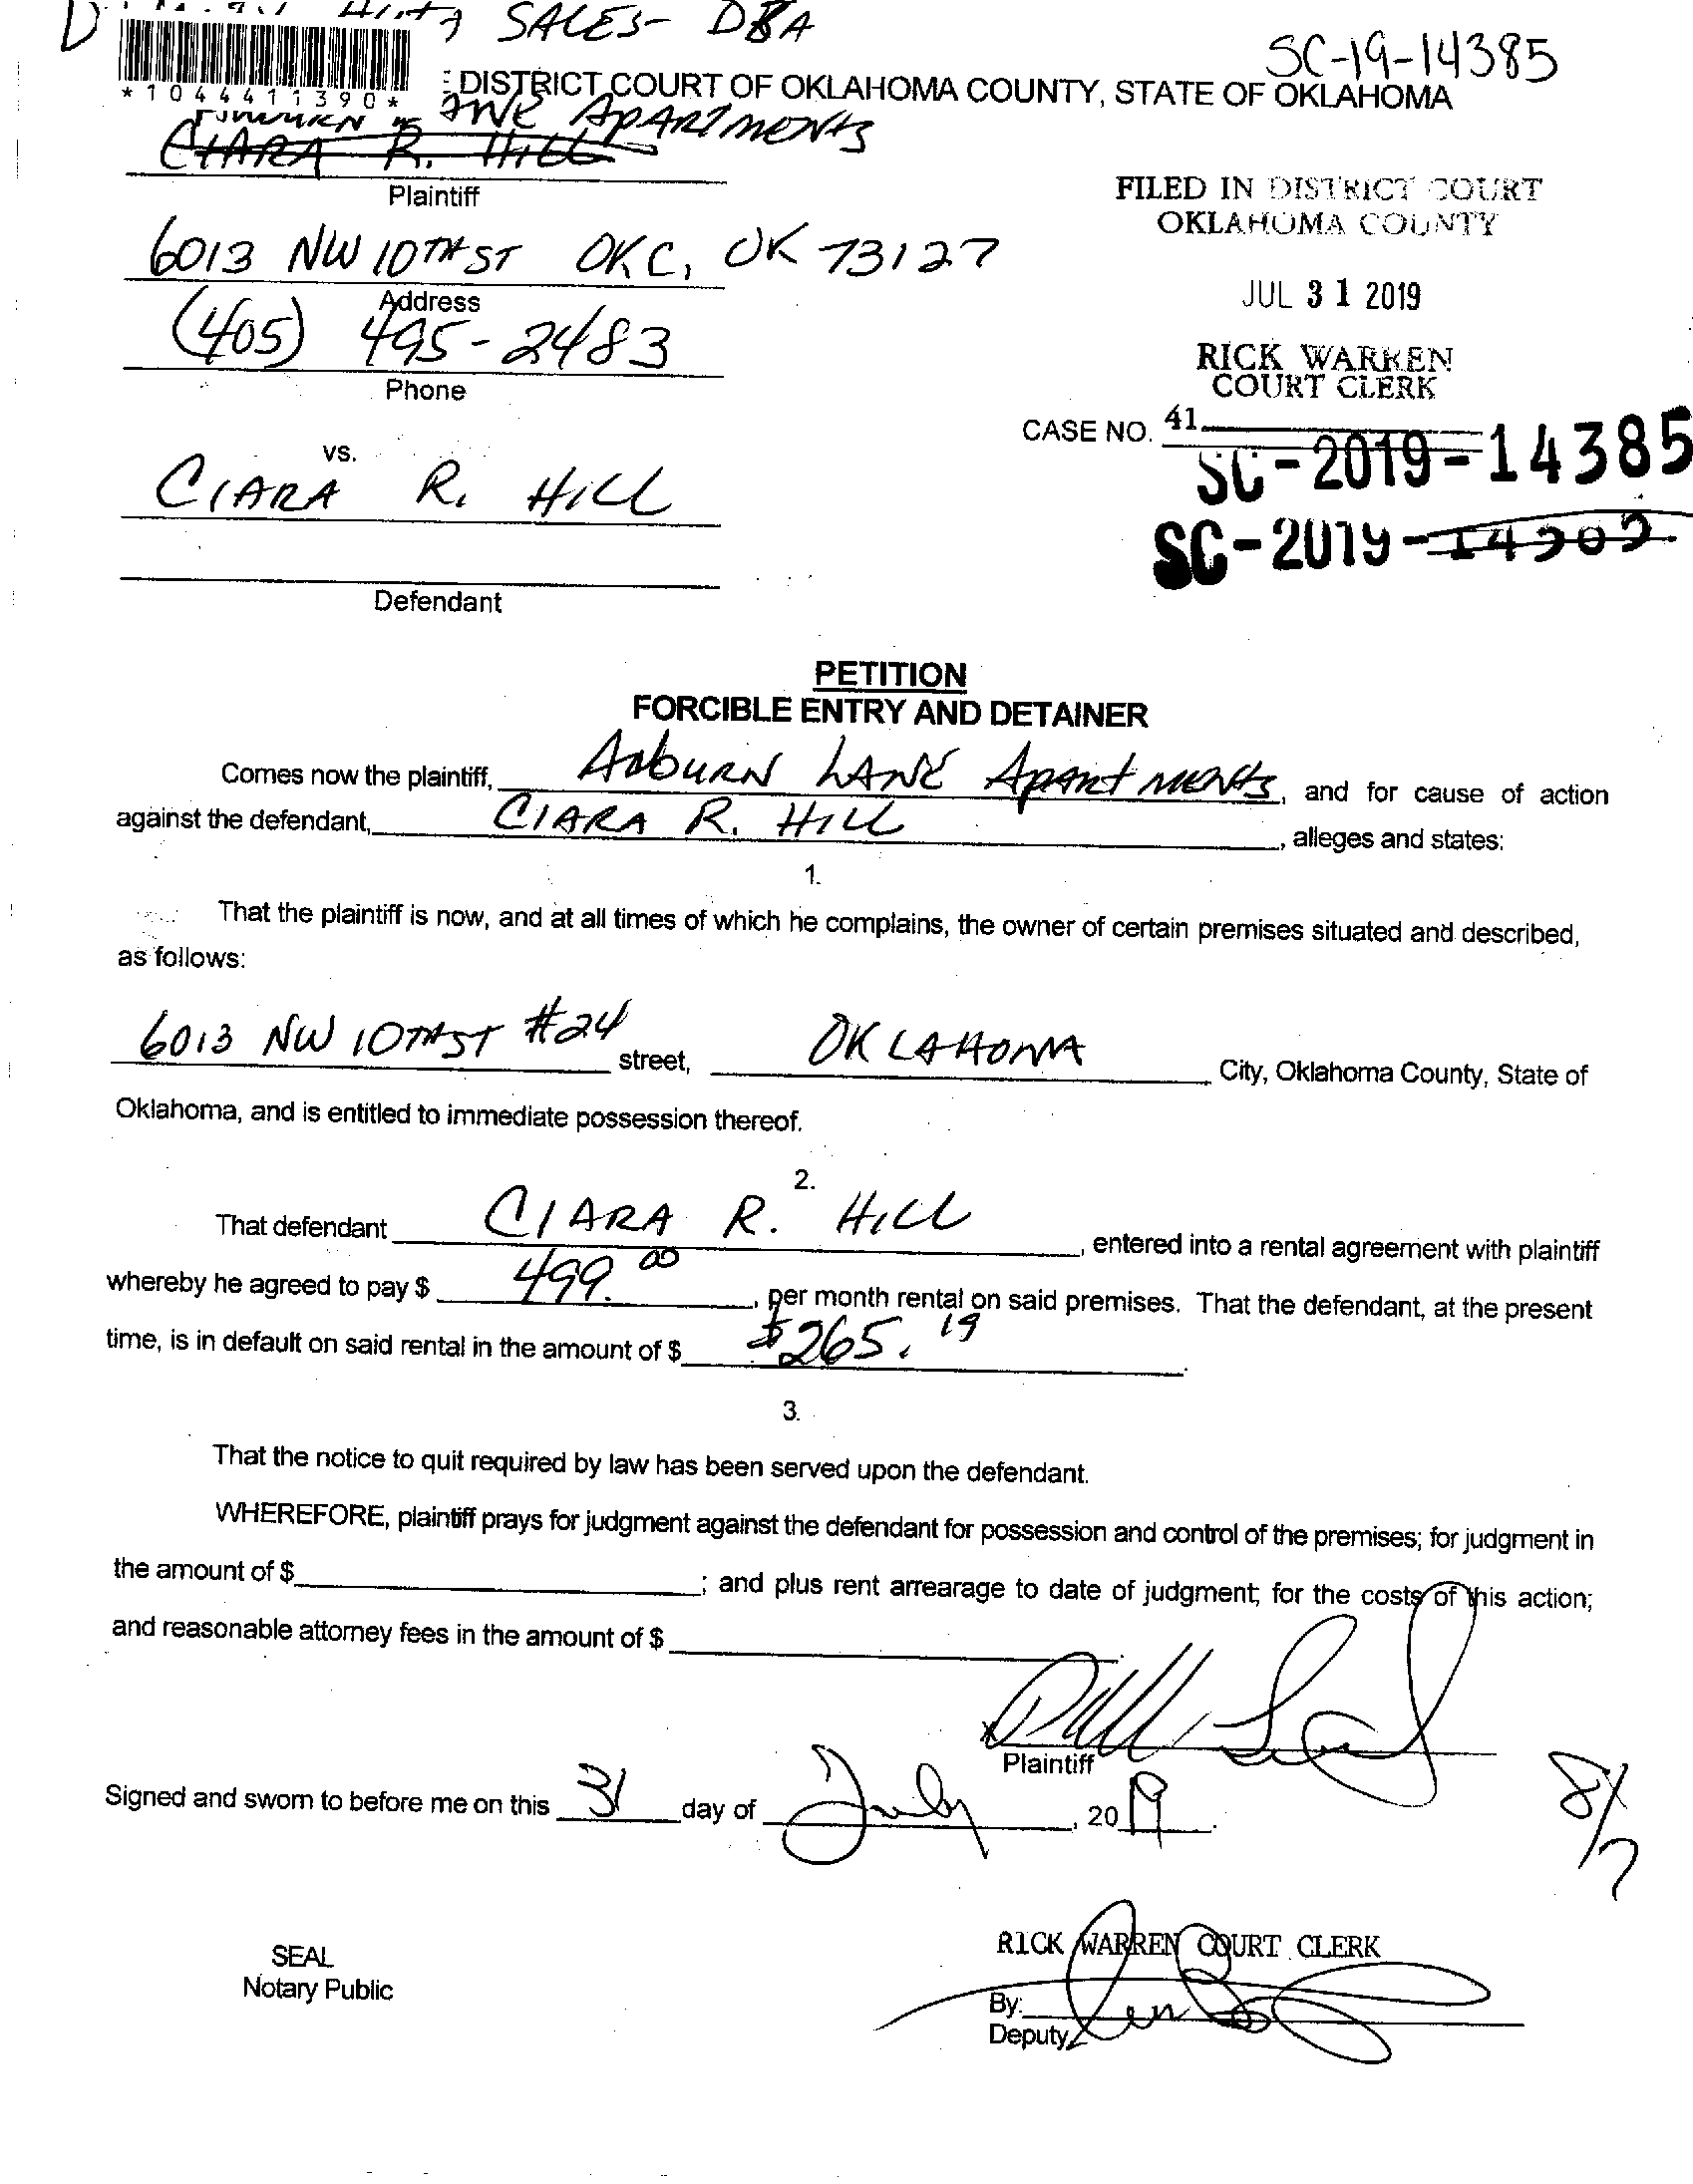 SALES- DBA
SC-19-14385
*1044411390*
DISTRICT COURT OF OKLAHOMA COUNTY, STATE OF OKLAHOMA
APARTMENTS
CIARA R. HILL
Plaintiff
FILED IN DISTRICT COURT
OKLAHOMA COUNTY
6013 NW 10TH ST OKC, OK 73127
Address
JUL 31 2019
(405) 495-2483
Phone
RICK WARREN
COURT CLERK
CASE NO. 41.
SC-2019-14385
vs.
CIARA R. HILL
SC-2019-
Defendant
PETITION
FORCIBLE ENTRY AND DETAINER
Comes now the plaintiff, AubURN LANE ApARtMENtS, and for cause of action
against the defendant, CIARA R. HILL, alleges and states:
1.
That the plaintiff is now, and at all times of which he complains, the owner of certain premises situated and described,
as follows:
6013 NW 10TH ST #24 street, OKLAHOMA City, Oklahoma County, State of
Oklahoma, and is entitled to immediate possession thereof.
2.
That defendant CIARA R. HILL, entered into a rental agreement with plaintiff
whereby he agreed to pay $ 499.00, per month rental on said premises. That the defendant, at the present
time, is in default on said rental in the amount of $ $265.19.
3.
That the notice to quit required by law has been served upon the defendant.
WHEREFORE, plaintiff prays for judgment against the defendant for possession and control of the premises; for judgment in
the amount of $; and plus rent arrearage to date of judgment; for the costs of this action;
and reasonable attorney fees in the amount of $.
x
Plaintiff
Signed and sworn to before me on this 31 day of July, 2019.
8/7
SEAL
Notary Public
RICK WARREN COURT CLERK
By:
Deputy